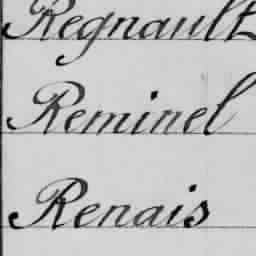 Regnault
Reminel
Renais